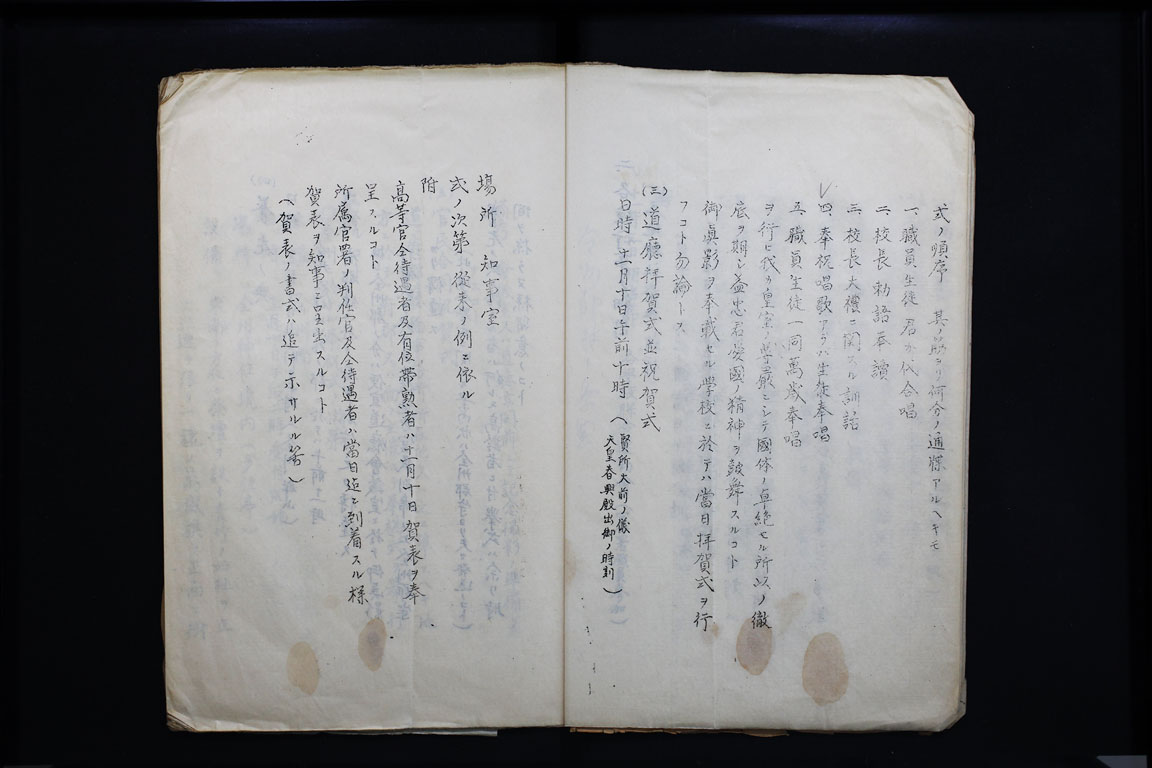 式ノ順序 其ノ筋ヨリ何分ノ通牒アルヘキモ
一、職員生徒君ガ代合唱
二、校長勅語奉讀
三、校長大禮ニ関スル訓話
四、奉祝唱歌アラハ生徒奉唱
五、職員生徒一同萬歳奉唱
ヲ行ヒ代々皇室ノ尊厳ニシテ國体ノ卓絶セル所以ノ徹
底ヲ期シ益忠君愛國ノ精神ヲ鼓舞スルコト
御眞影ヲ奉載セル学校ニ於テハ當日拝賀式ヲ行
フコト勿論トス
(三)道廳拝賀式並祝賀式
日時 十一月十日午前十時(賢所大前ノ儀
天皇春興殿出御ノ時刻)
場所 知事室
式ノ次第従来ノ例ニ依ル
附
高等官仝待遇者及有位帯勲者ハ十一月十日賀表ヲ奉
呈スルコト
所属官署ノ判任官及仝待遇者ハ當日迄ニ到着スル様
賀表ヲ知事ニ呈出スルコト
(賀表ノ書式ハ追テ示サルル筈)